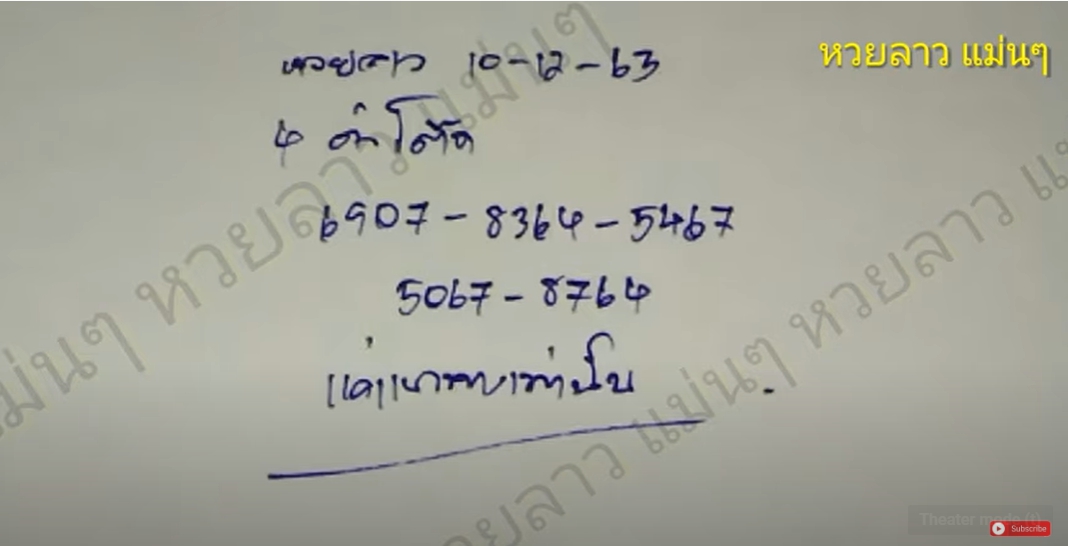 หวยลาว แม่นๆ
หวยลาว 10-12-63
4 ตัวโต๊ด
6907 - 8364 - 5467
5067 - 8764
แค่แนวทางเท่านั้น
หวยลาว แม่นๆ
แม่นๆ หวยลาว แม่นๆ
หวยลาว แม่นๆ หวยลาว แม่
Theater mode (t)
Subscribe